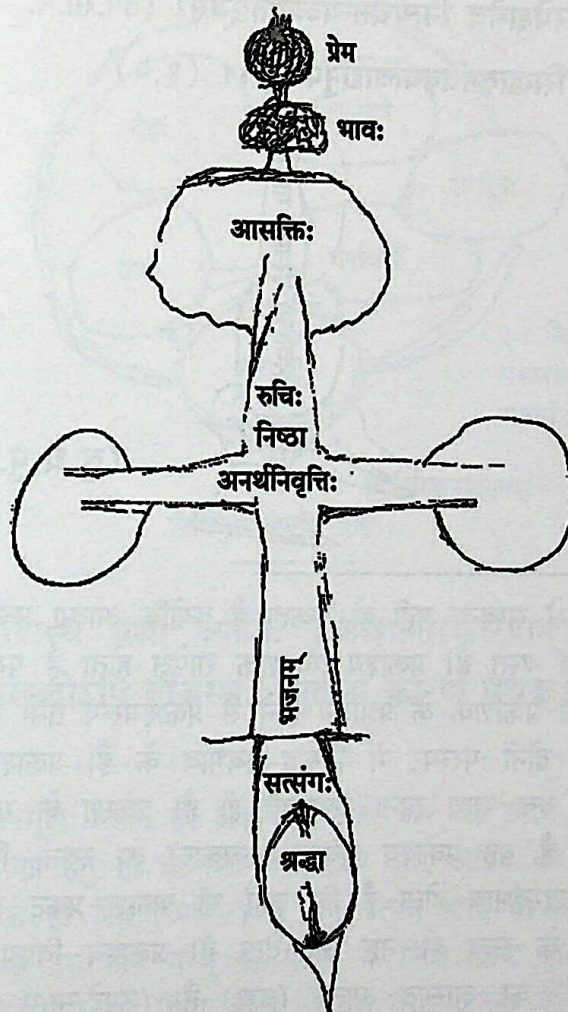 प्रेम
भावः
आसक्तिः
रुचिः
निष्ठा
अनर्थनिवृत्तिः
भजनम्
सत्संगः
श्रद्धा